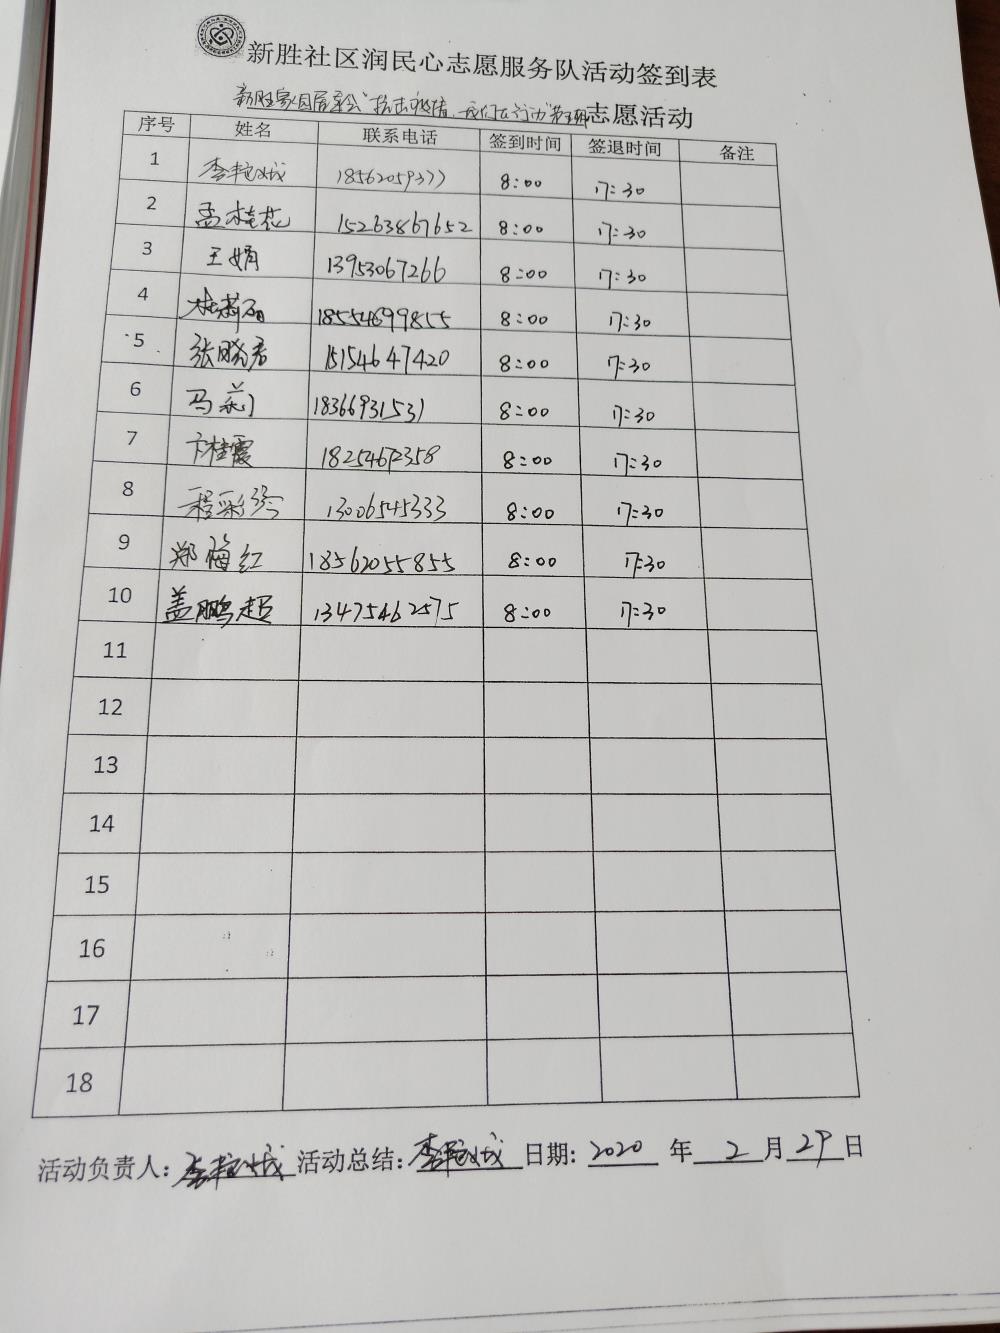 新胜社区润民心志愿服务队活动签到表
新胜家园居委会"抗击疫情、我们在行动"志愿活动
序号 姓名 联系电话 签到时间 签退时间 备注
1 18562059377 8:00 17:30
2 孟桂花 15263867652 8:00 17:30
3 王娟 13953067266 8:00 17:30
4 18554699855 8:00 17:30
5 张晓君 15154647420 8:00 17:30
6 马莉 18366931531 8:00 17:30
7 卞桂霞 18254672358 8:00 17:30
8 程彩玲 13006545333 8:00 17:30
9 郑梅红 18562055855 8:00 17:30
10 盖鹏超 13475462575 8:00 17:30
11
12
13
14
15
16
17
18
活动负责人: 活动总结: 日期: 2020 年 2 月 29 日